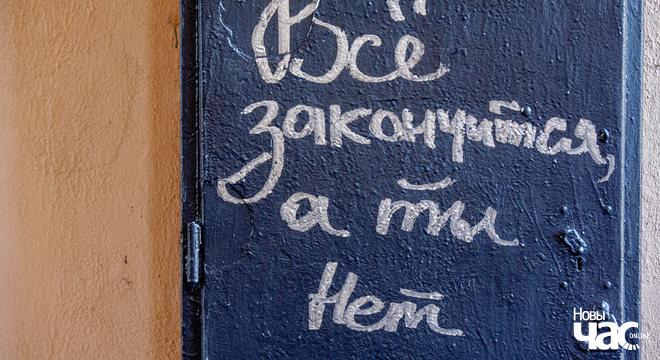 Всё
закончится,
а ты
Нет
Новы
Час
ONLINE